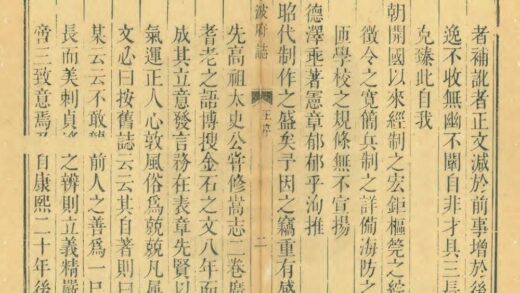 者補訛者正文減於前事增於後
逸不收無幽不闡自非才具三長
克臻此自我
朝開國以來經制之宏鉅樞筦之
徵令之寬簡兵制之詳備海防之
匝學校之規條無不宣揚
德澤埀著憲章郁郁乎洵推
昭代制作之盛矣予因之竊重有感
波府誌
王序
二
先高祖太史公嘗修嵩志二卷
耆老之語博搜金石之文八年而
成其立意發言務在表章先賢以
氣運正人心敦風俗爲兢兢凡
文必曰按舊誌云云其自著則曰
某云云不敢襲前人之善爲一
長而美刺貞之辨則立義精嚴
帝三致意焉自康熙二十年後